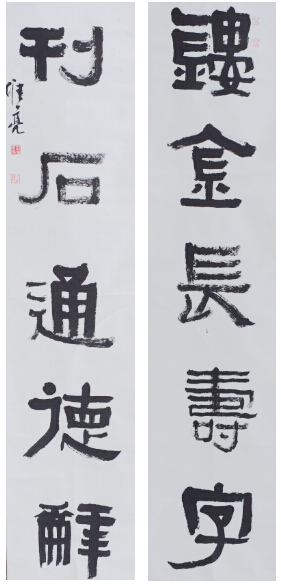 鏤金長壽字
刊石通德辭
亮